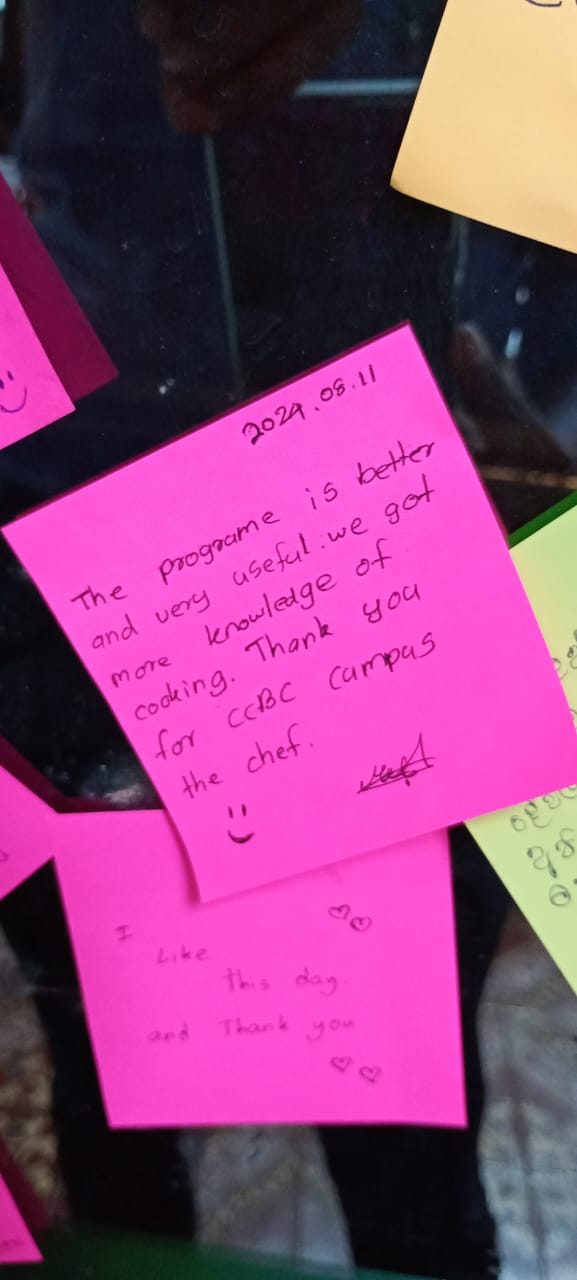 2024.08.11
The programe is better
and very useful. we got
more knowledge of
cooking. Thank you
for CCBC Campus
the chef.
I
Like
This day.
and Thank you